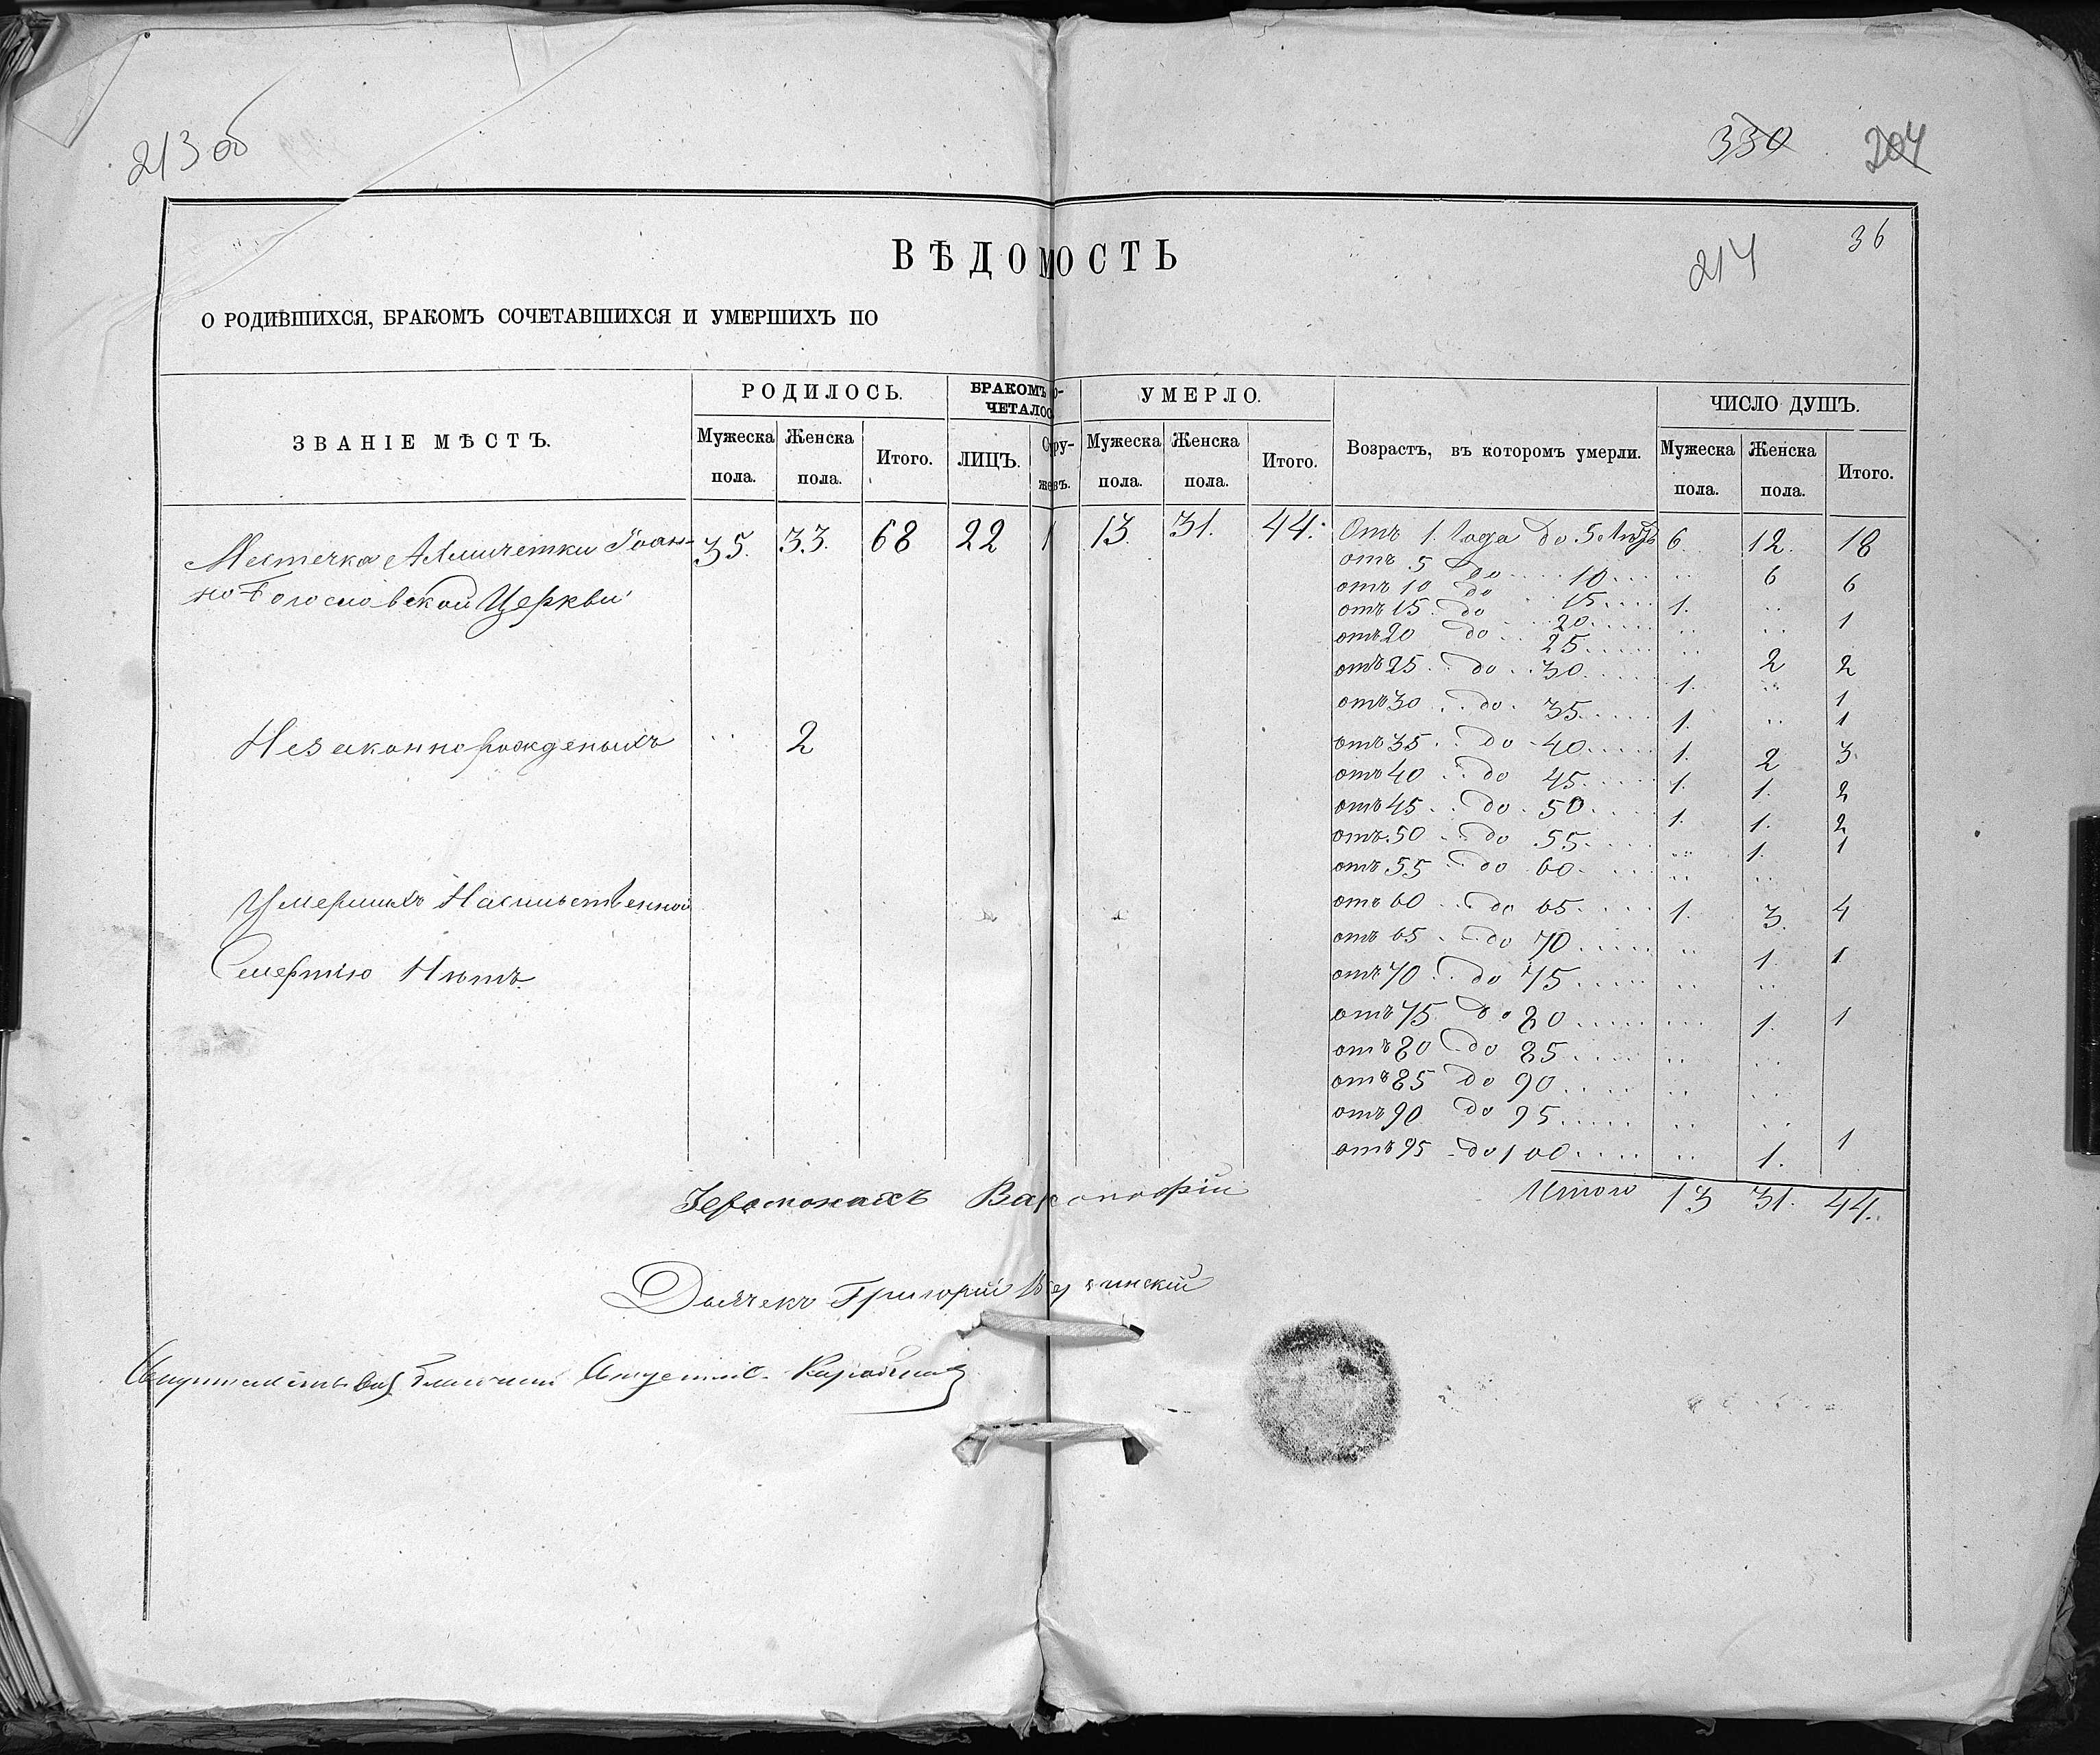 213 об
330 204
ВѢДОМОСТЬ
214 36
О РОДИВШИХСЯ, БРАКОМЪ СОЧЕТАВШИХСЯ И УМЕРШИХЪ ПО
ЗВАНІЕ МѢСТЪ. РОДИЛОСЬ. БРАКОМЪ СО- УМЕРЛО. Возрастъ, въ которомъ умерли. ЧИСЛО ДУШЪ.
ЧЕТАЛОСЬ
Мужеска Женска Итого. ЛИЦЪ. Супру- Мужеска Женска Итого. Мужеска Женска Итого.
пола. пола. жевъ. пола. пола. пола. пола.
Местечка Іоан- 35. 33. 68 22 1 13. 31. 44. Отъ 1. Года до 5. Лѣтъ 6. 12. 18
но Богословской Церкви
отъ 5 до 10 .. 6 6
отъ 10 до 15 1. .. 1
отъ 15 до 20 .. ..
отъ 20 до 25 .. 2 2
отъ 25 до 30 1. .. 1
отъ 30 до 35 1. .. 1
Незаконнорожденыхъ .. 2
отъ 35 до 40 1. 2 3
отъ 40 до 45 1. 1. 2
отъ 45 до 50 1. 1. 2
отъ 50 до 55 .. 1. 1
отъ 55 до 60 .. ..
Умершихъ Насильственной
отъ 60 до 65 1. 3. 4
отъ 65 до 70 .. 1 1
Смертію Нѣтъ.
отъ 70 до 75 .. ..
отъ 75 до 80 ... 1. 1
отъ 80 до 85 .. ..
отъ 85 до 90 .. ..
отъ 90 до 95 .. ..
отъ 95 до 100 .. 1. 1
Итого 13 31. 44.
Іеромонахъ
Дьячекъ Григорій